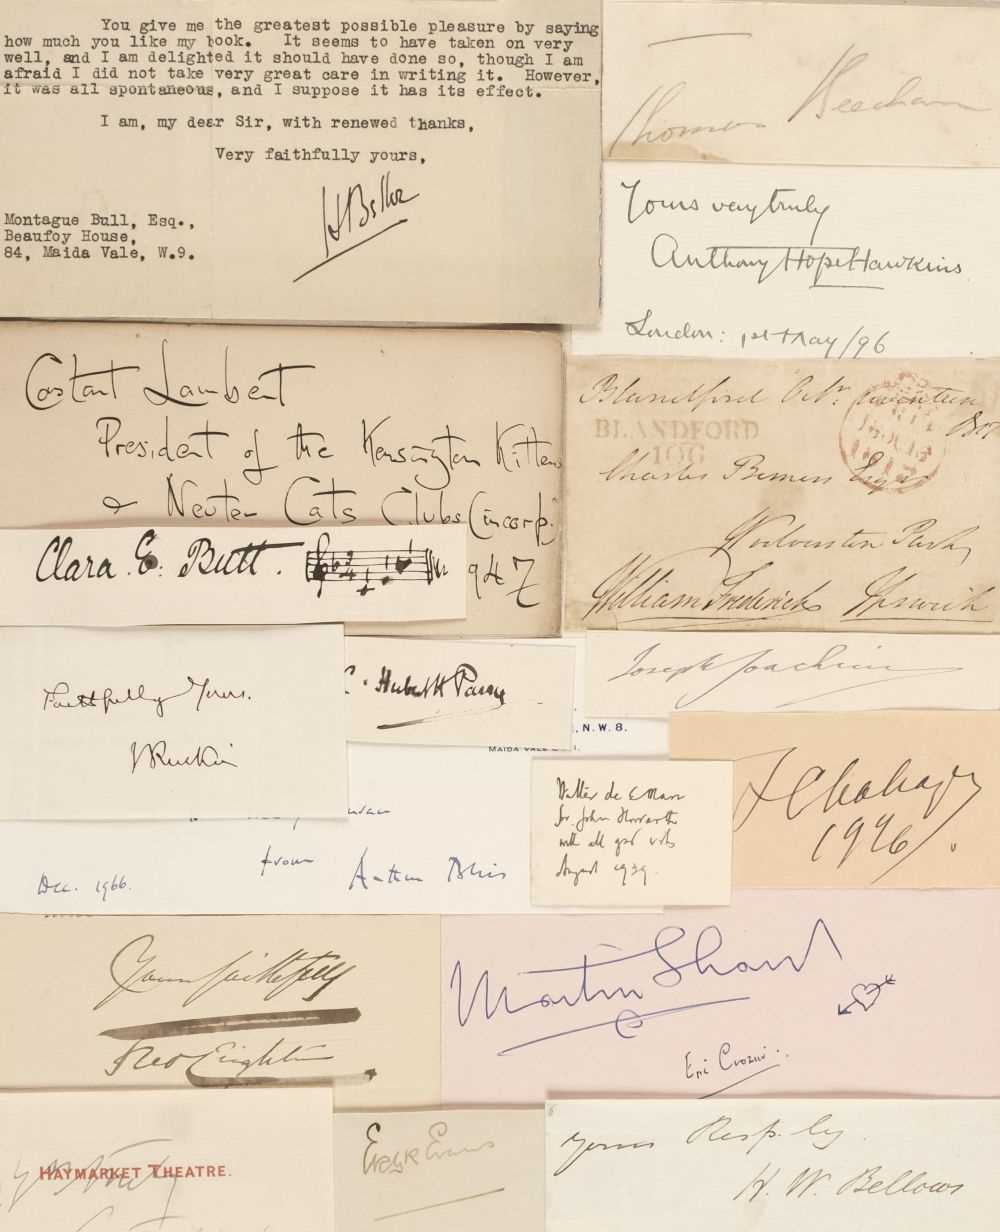 You give me the greatest possible pleasure by saying
how much you like my book. It seems to have taken on very
well, and I am delighted it should have done so, though I am
afraid I did not take very great care in writing it. However,
it was all spontaneous, and I suppose it has its effect.
I am, my dear Sir, with renewed thanks,
Very faithfully yours,
Montague Bull, Esq.,
Beaufoy House,
84, Maida Vale, W.9.
Thomas Beecham
Yours very truly
Anthony Hope Hawkins
London: 1st May /96
Constant Lambert
President of the Kensington Kittens
& Neuter Cats Clubs (incorp.
947
Clara E. Butt.
Blandford Octr.
BLANDFORD
106
Charles Berners Esqr
Wolverston Park
William Frederick Ipswich
Faithfully Yours.
JRuskin
C. Hubert H Parry
Joseph Joachim
, N.W.8.
MAIDA VALE
from Arthur Bliss
Dec. 1966.
Walter de la Mare
for John Howarth
with all good
August 1939.
1926.
Yours faithfully
Fred Leighton
Martin Shaw
Eric Crozier.
HAYMARKET THEATRE.
Evans
6
Yours Resp. ly.
H. W. Bellows